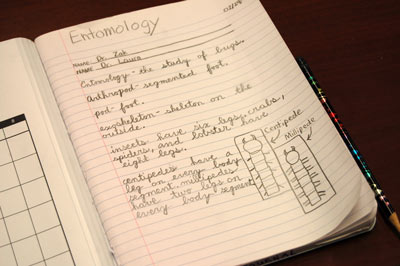 Entomology
NAME Dr. Zak
NAME Dr. Laura
Entomology - the study of bugs.
Arthropod - segmented foot.
pod - foot.
exoskeleton - skeleton on the
outside.
insects have six legs, crabs,
spiders, and lobster have
eight legs.
centipedes have a
leg on every body
segment, milipedes
have two legs on
every body segment
Centipede
Milipede